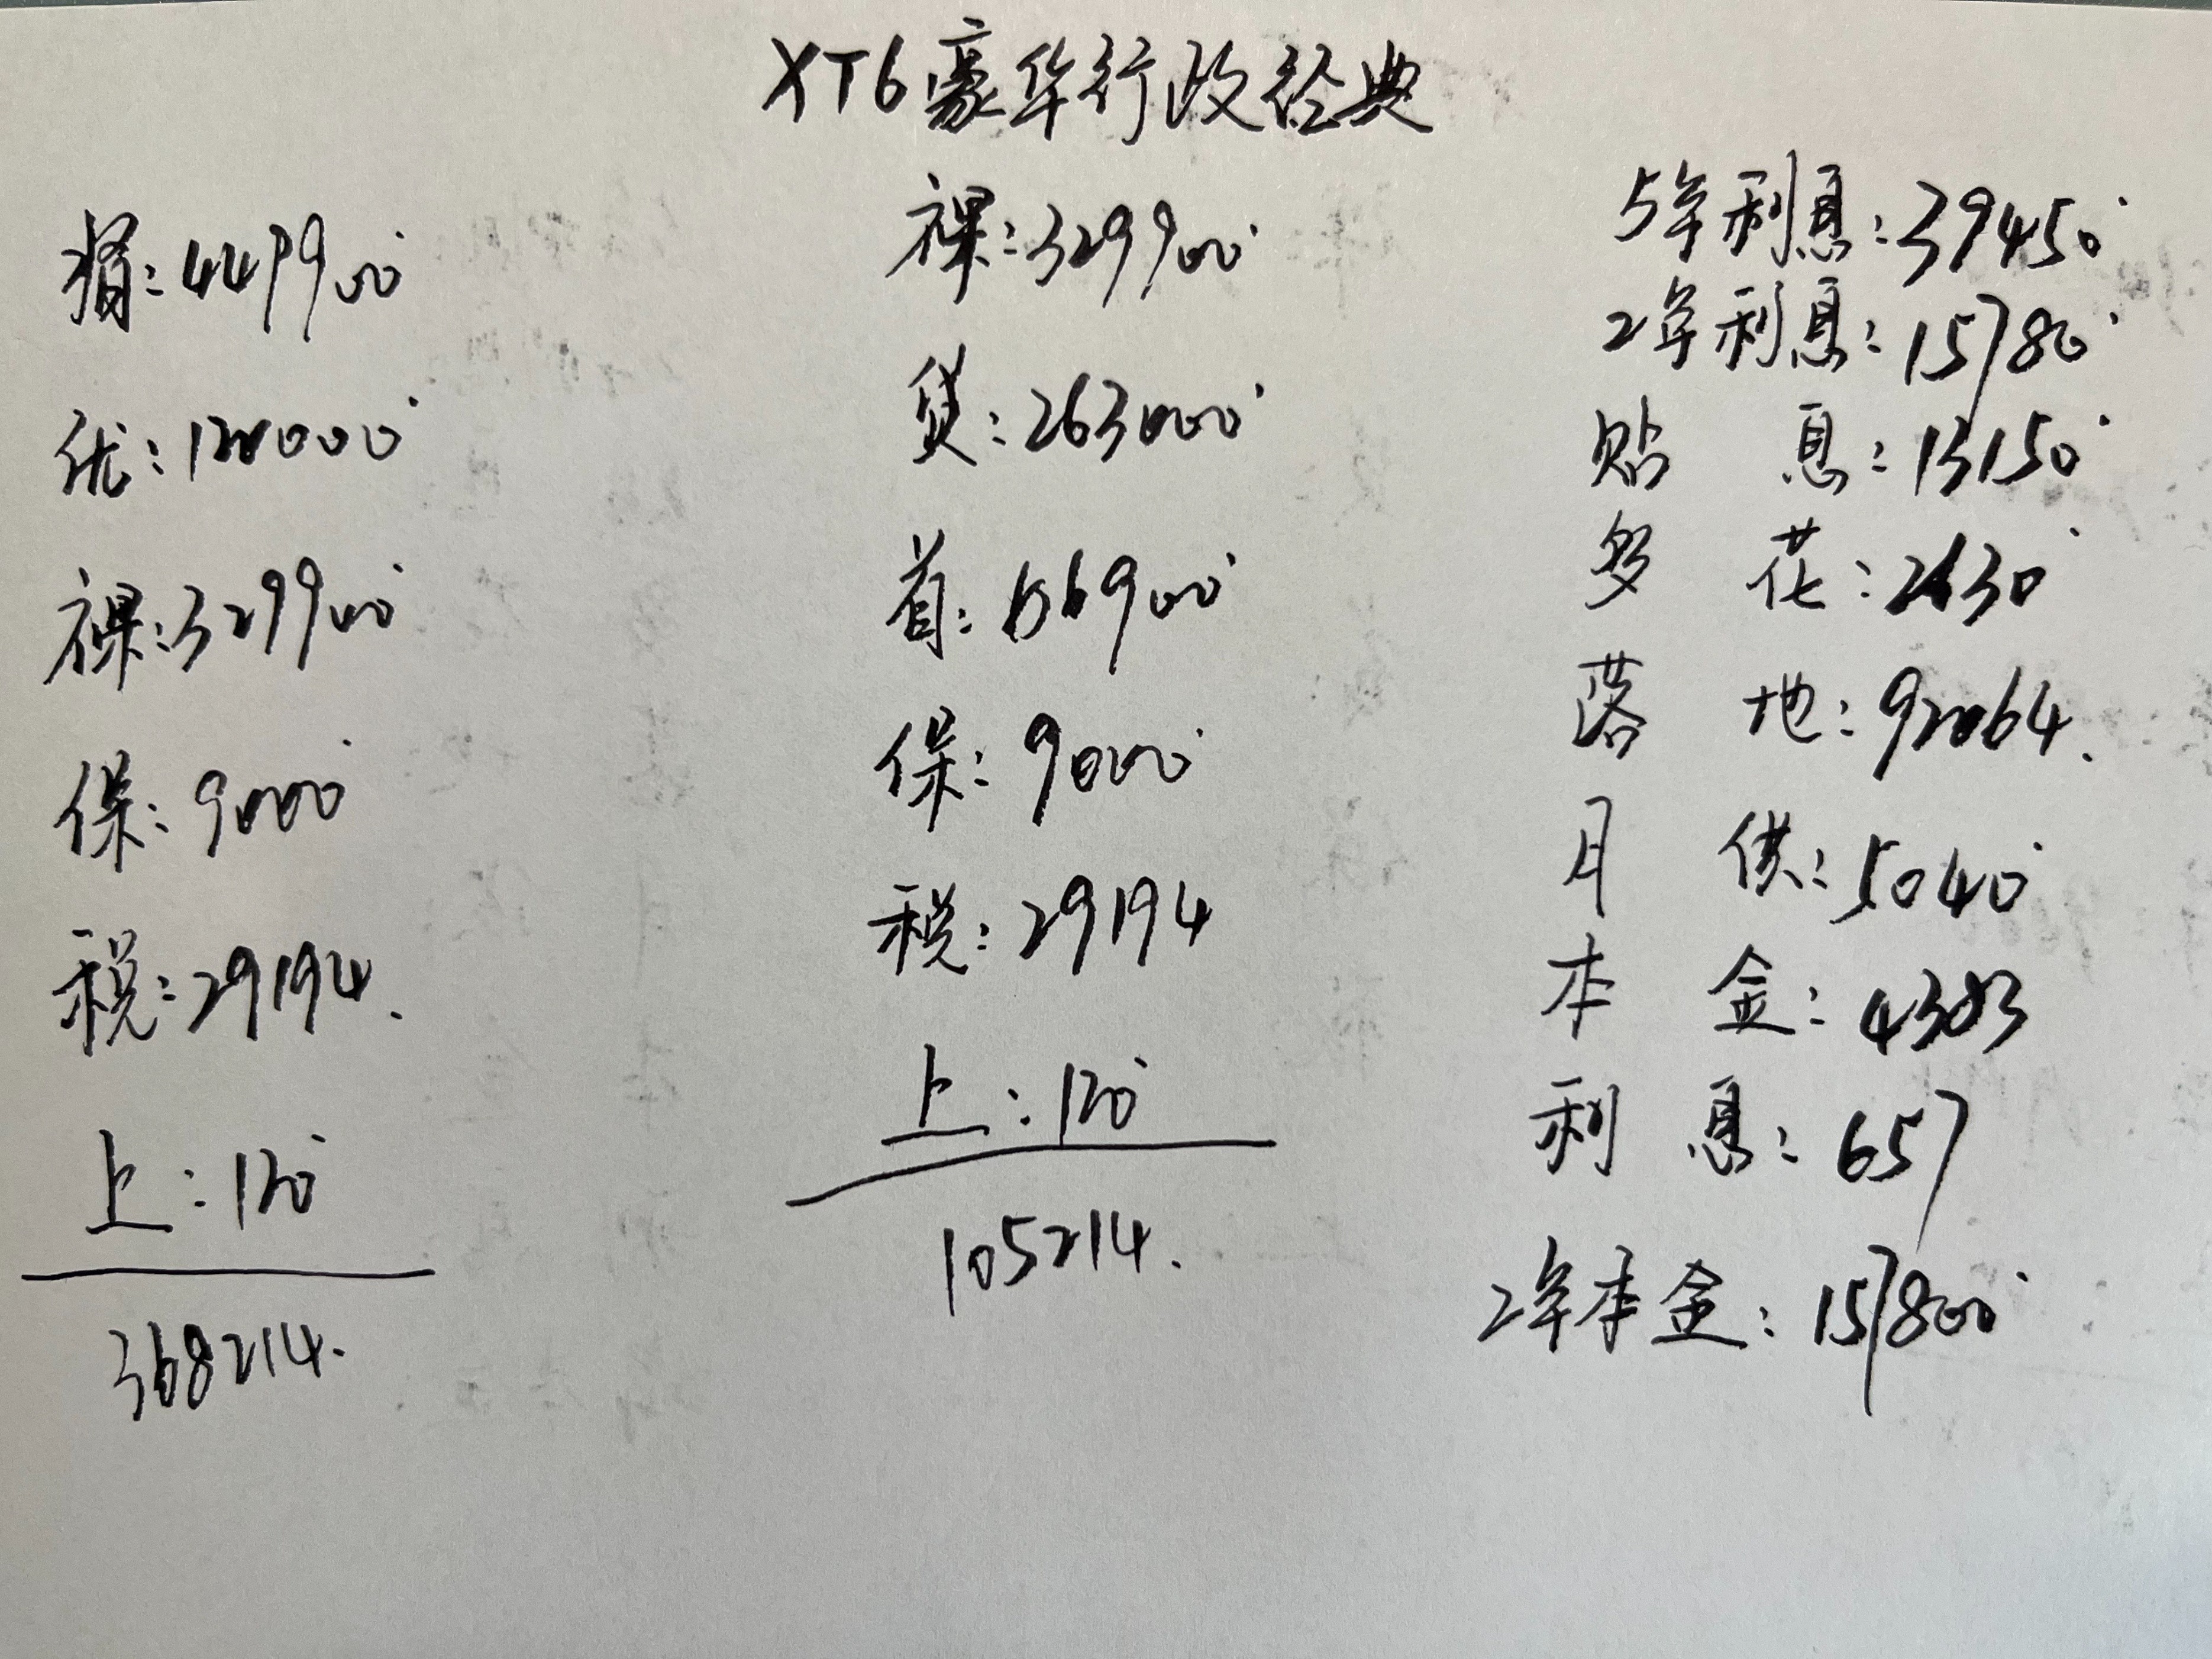 XT6豪华行政经典
指:449900
优:120000
裸:329900
保:9000
税:29194.
上:120
368214.
裸:329900
贷:263000
首:66900
保:9000
税:29194
上:120
105214.
5年利息:39450
2年利息:15780
贴 息:13150
多 花:2630
落 地:92064.
月 供:5040
本 金:4383
利 息:657
2年本金:157800